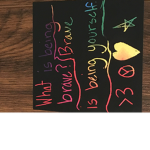 What is being
brave? Brave
is being yourself
>3